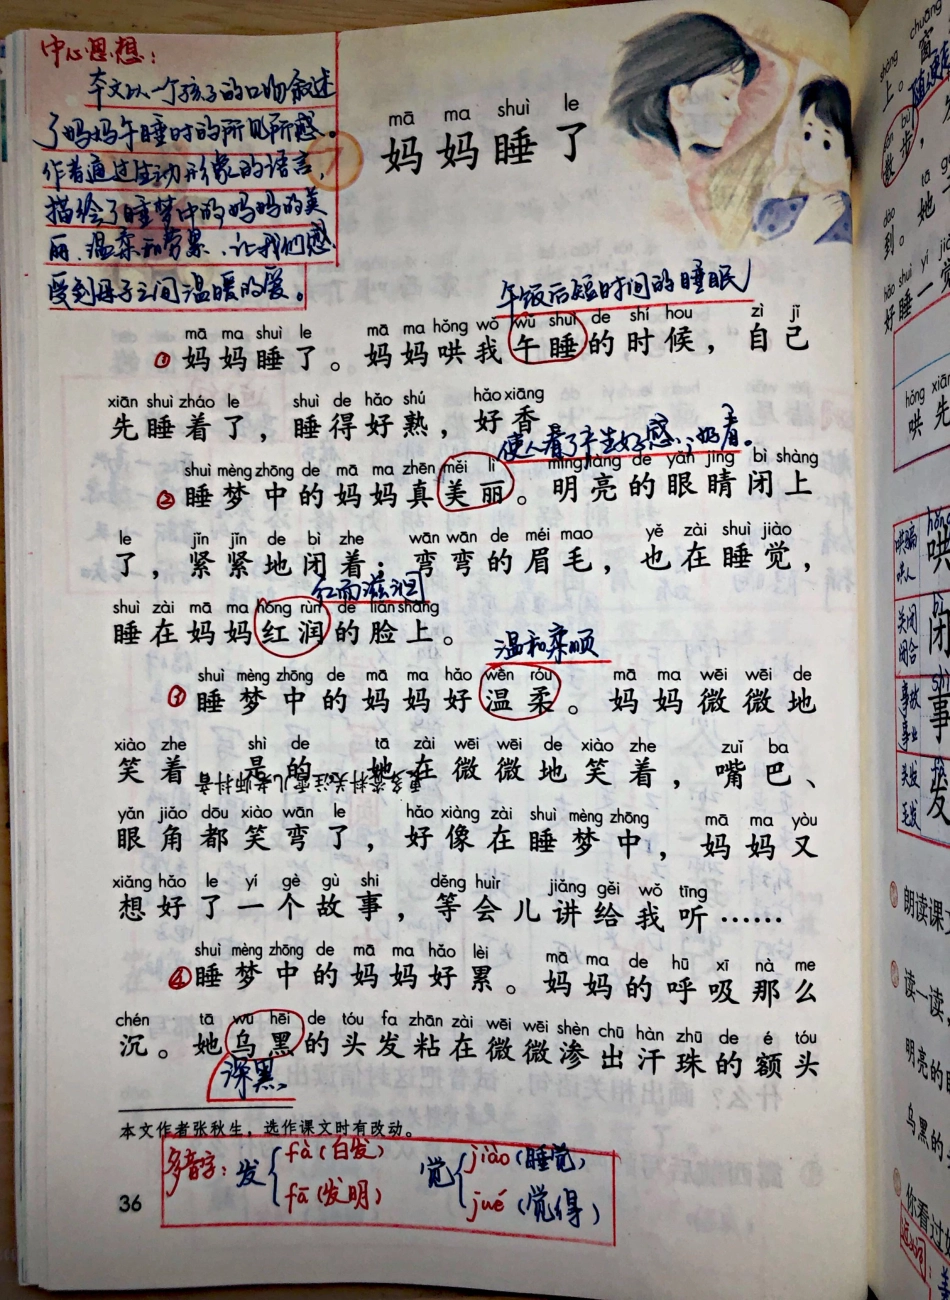 中心思想：
本文以一个孩子的口吻叙述
了妈妈午睡时的所见所感。
作者通过生动形象的语言，
描绘了睡梦中的妈妈的美
丽、温柔和劳累，让我们感
受到母子之间温暖的爱。
7
mā ma shuì le
妈妈睡了
午饭后短时间的睡眠
mā ma shuì le mā ma hǒng wǒ wǔ shuì de shí hou zì jǐ
①妈妈睡了。妈妈哄我午睡的时候，自己
xiān shuì zháo le shuì de hǎo shú hǎo xiāng
先睡着了，睡得好熟，好香。
使人看了产生好感；好看。
shuì mèng zhōng de mā ma zhēn měi lì míng liàng de yǎn jīng bì shàng
②睡梦中的妈妈真美丽。明亮的眼睛闭上
le jǐn jǐn de bì zhe wān wān de méi mao yě zài shuì jiào
了，紧紧地闭着；弯弯的眉毛，也在睡觉，
红而滋润
shuì zài mā ma hóng rùn de liǎn shang
睡在妈妈红润的脸上。
温和柔顺
shuì mèng zhōng de mā ma hǎo wēn róu mā ma wēi wēi de
③睡梦中的妈妈好温柔。妈妈微微地
xiào zhe shì de tā zài wēi wēi de xiào zhe zuǐ ba
笑着。是的，她在微微地笑着，嘴巴、
更多资料关注雪儿老师抖音
yǎn jiǎo dōu xiào wān le hǎo xiàng zài shuì mèng zhōng mā ma yòu
眼角都笑弯了，好像在睡梦中，妈妈又
xiǎng hǎo le yí gè gù shi děng huìr jiǎng gěi wǒ tīng
想好了一个故事，等会儿讲给我听……
shuì mèng zhōng de mā ma hǎo lèi mā ma de hū xī nà me
④睡梦中的妈妈好累。妈妈的呼吸那么
chén tā wū hēi de tóu fa zhān zài wēi wēi shèn chū hàn zhū de é tóu
沉。她乌黑的头发粘在微微渗出汗珠的额头
深黑
本文作者张秋生，选作课文时有改动。
多音字：发 fà（白发） fā（发明） 觉 jiào（睡觉） jué（觉得）
36
shàng chuāng
上。窗
随便走
sàn bù
散步，
dào tā
到。她
hǎo shuì yí jiào
好睡一觉
hǒng xiān
哄先
哄骗
哄人
哄
关闭
闭合
闭
事故
事业
事
头发
毛发
发
朗读课文
读一读，
明亮的眼
乌黑的头
你看过妈
近义词